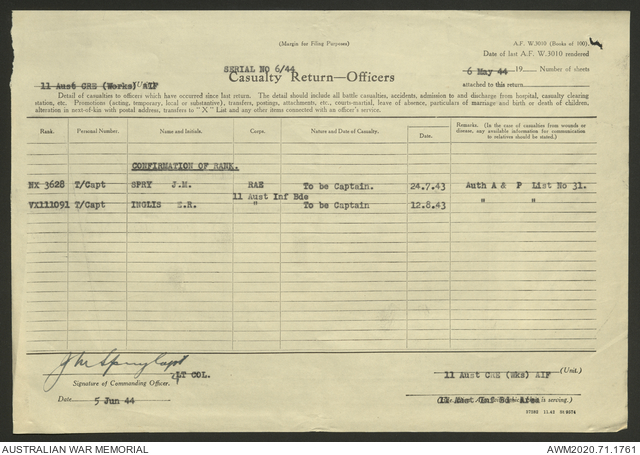 (Margin for Filing Purposes)
A.F. W.3010 (Books of 100)
Date of last A.F. W.3010 rendered
SERIAL NO 6/44
6 May 44 19 Number of sheets
11 Aust CRE (Works) AIF
Casualty Return—Officers
attached to this return
Detail of casualties to officers which have occurred since last return. The detail should include all battle casualties, accidents, admission to and discharge from hospital, casualty clearing
station, etc. Promotions (acting, temporary, local or substantive), transfers, postings, attachments, etc., courts-martial, leave of absence, particulars of marriage and birth or death of children,
alteration in next-of-kin with postal address, transfers to "X" List and any other items connected with an officer's service.
Rank. Personal Number. Name and Initials. Corps. Nature and Date of Casualty. Date. Remarks. (In the case of casualties from wounds or
disease, any available information for communication
to relatives should be stated.)
CONFIRMATION OF RANK.
NX 3628 T/Capt SPRY J.M. RAE To be Captain. 24.7.43 Auth A & P List No 31.
11 Aust Inf Bde
VX111091 T/Capt INGLIS E.R. " To be Captain 12.8.43 " "
J M Spry Capt
LT COL.
Signature of Commanding Officer.
11 Aust CRE (Wks) AIF (Unit.)
Date 5 Jun 44
11 Aust Inf Bd Area is serving.)
37582 11.43
AUSTRALIAN WAR MEMORIAL
AWM2020.71.1761